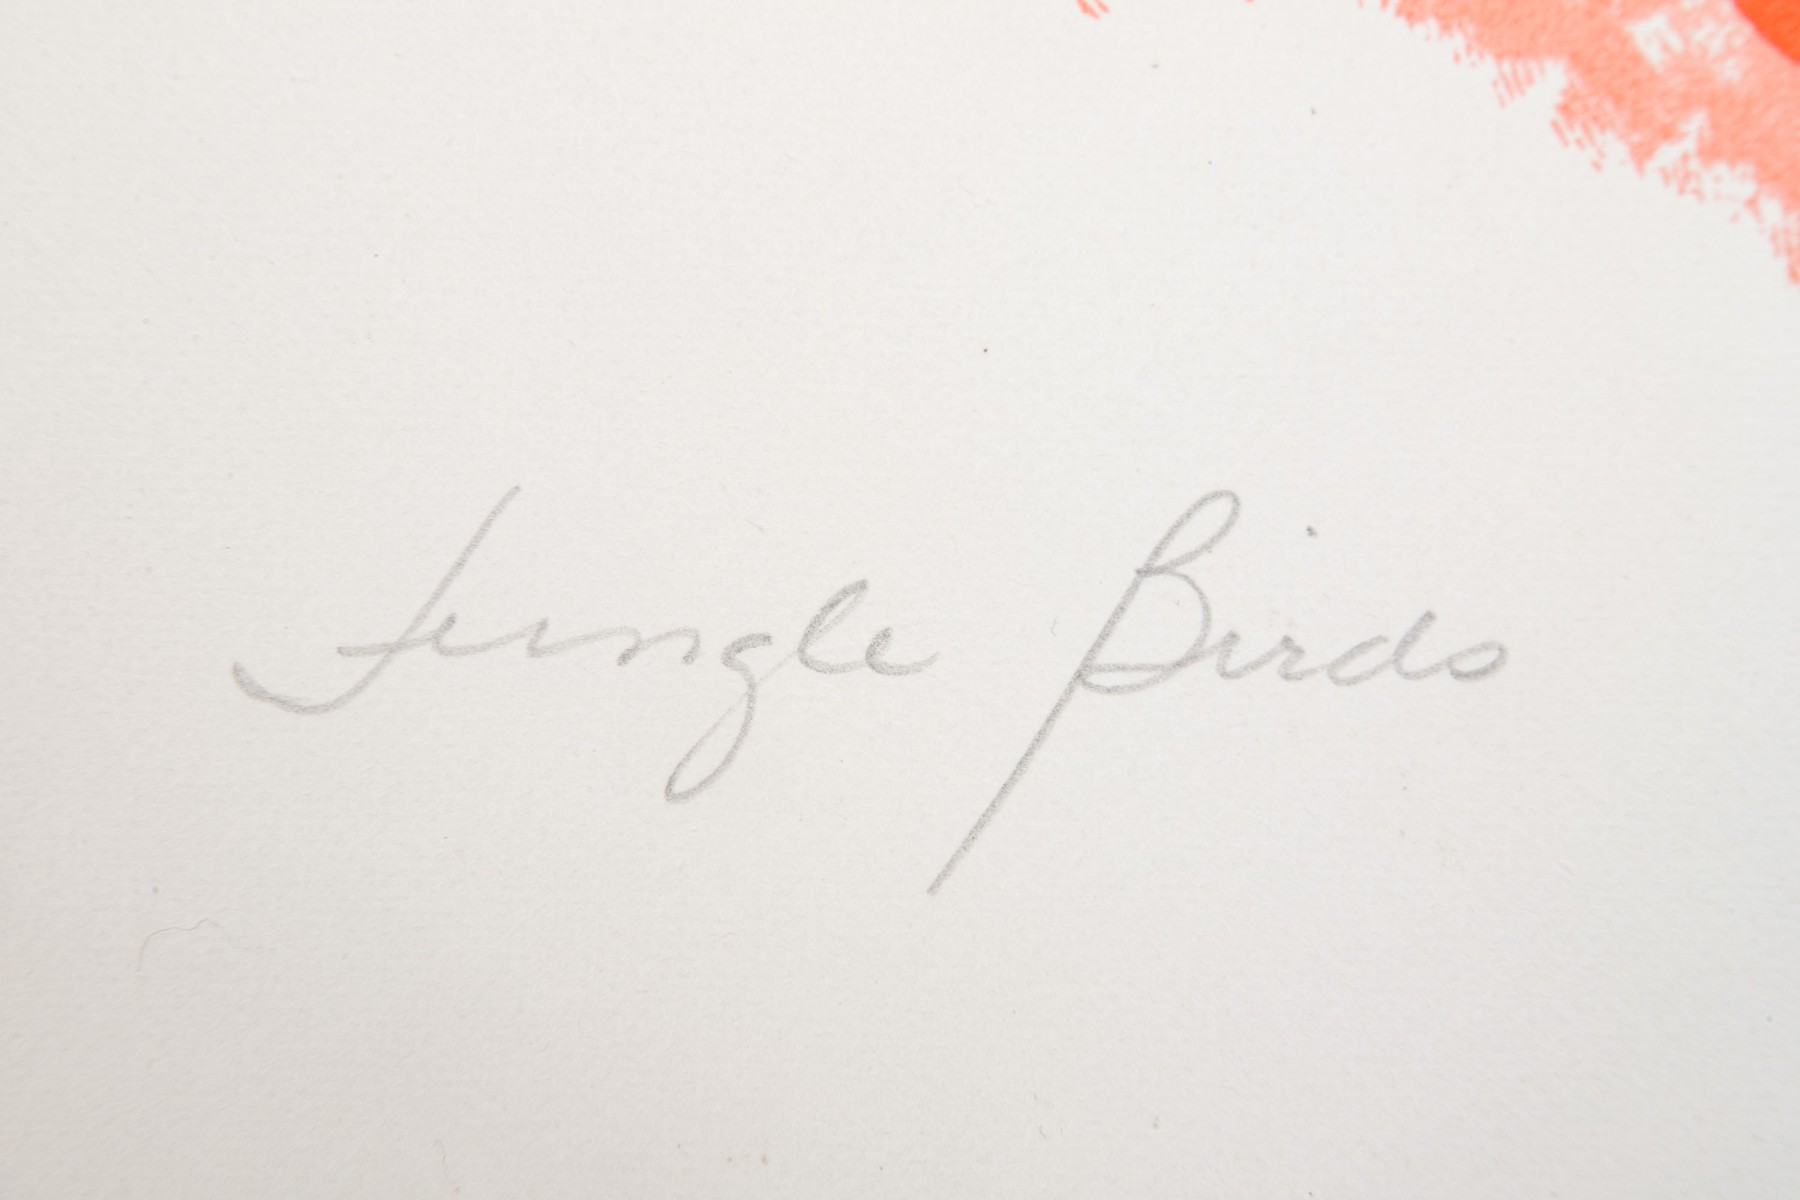 Jungle Birds